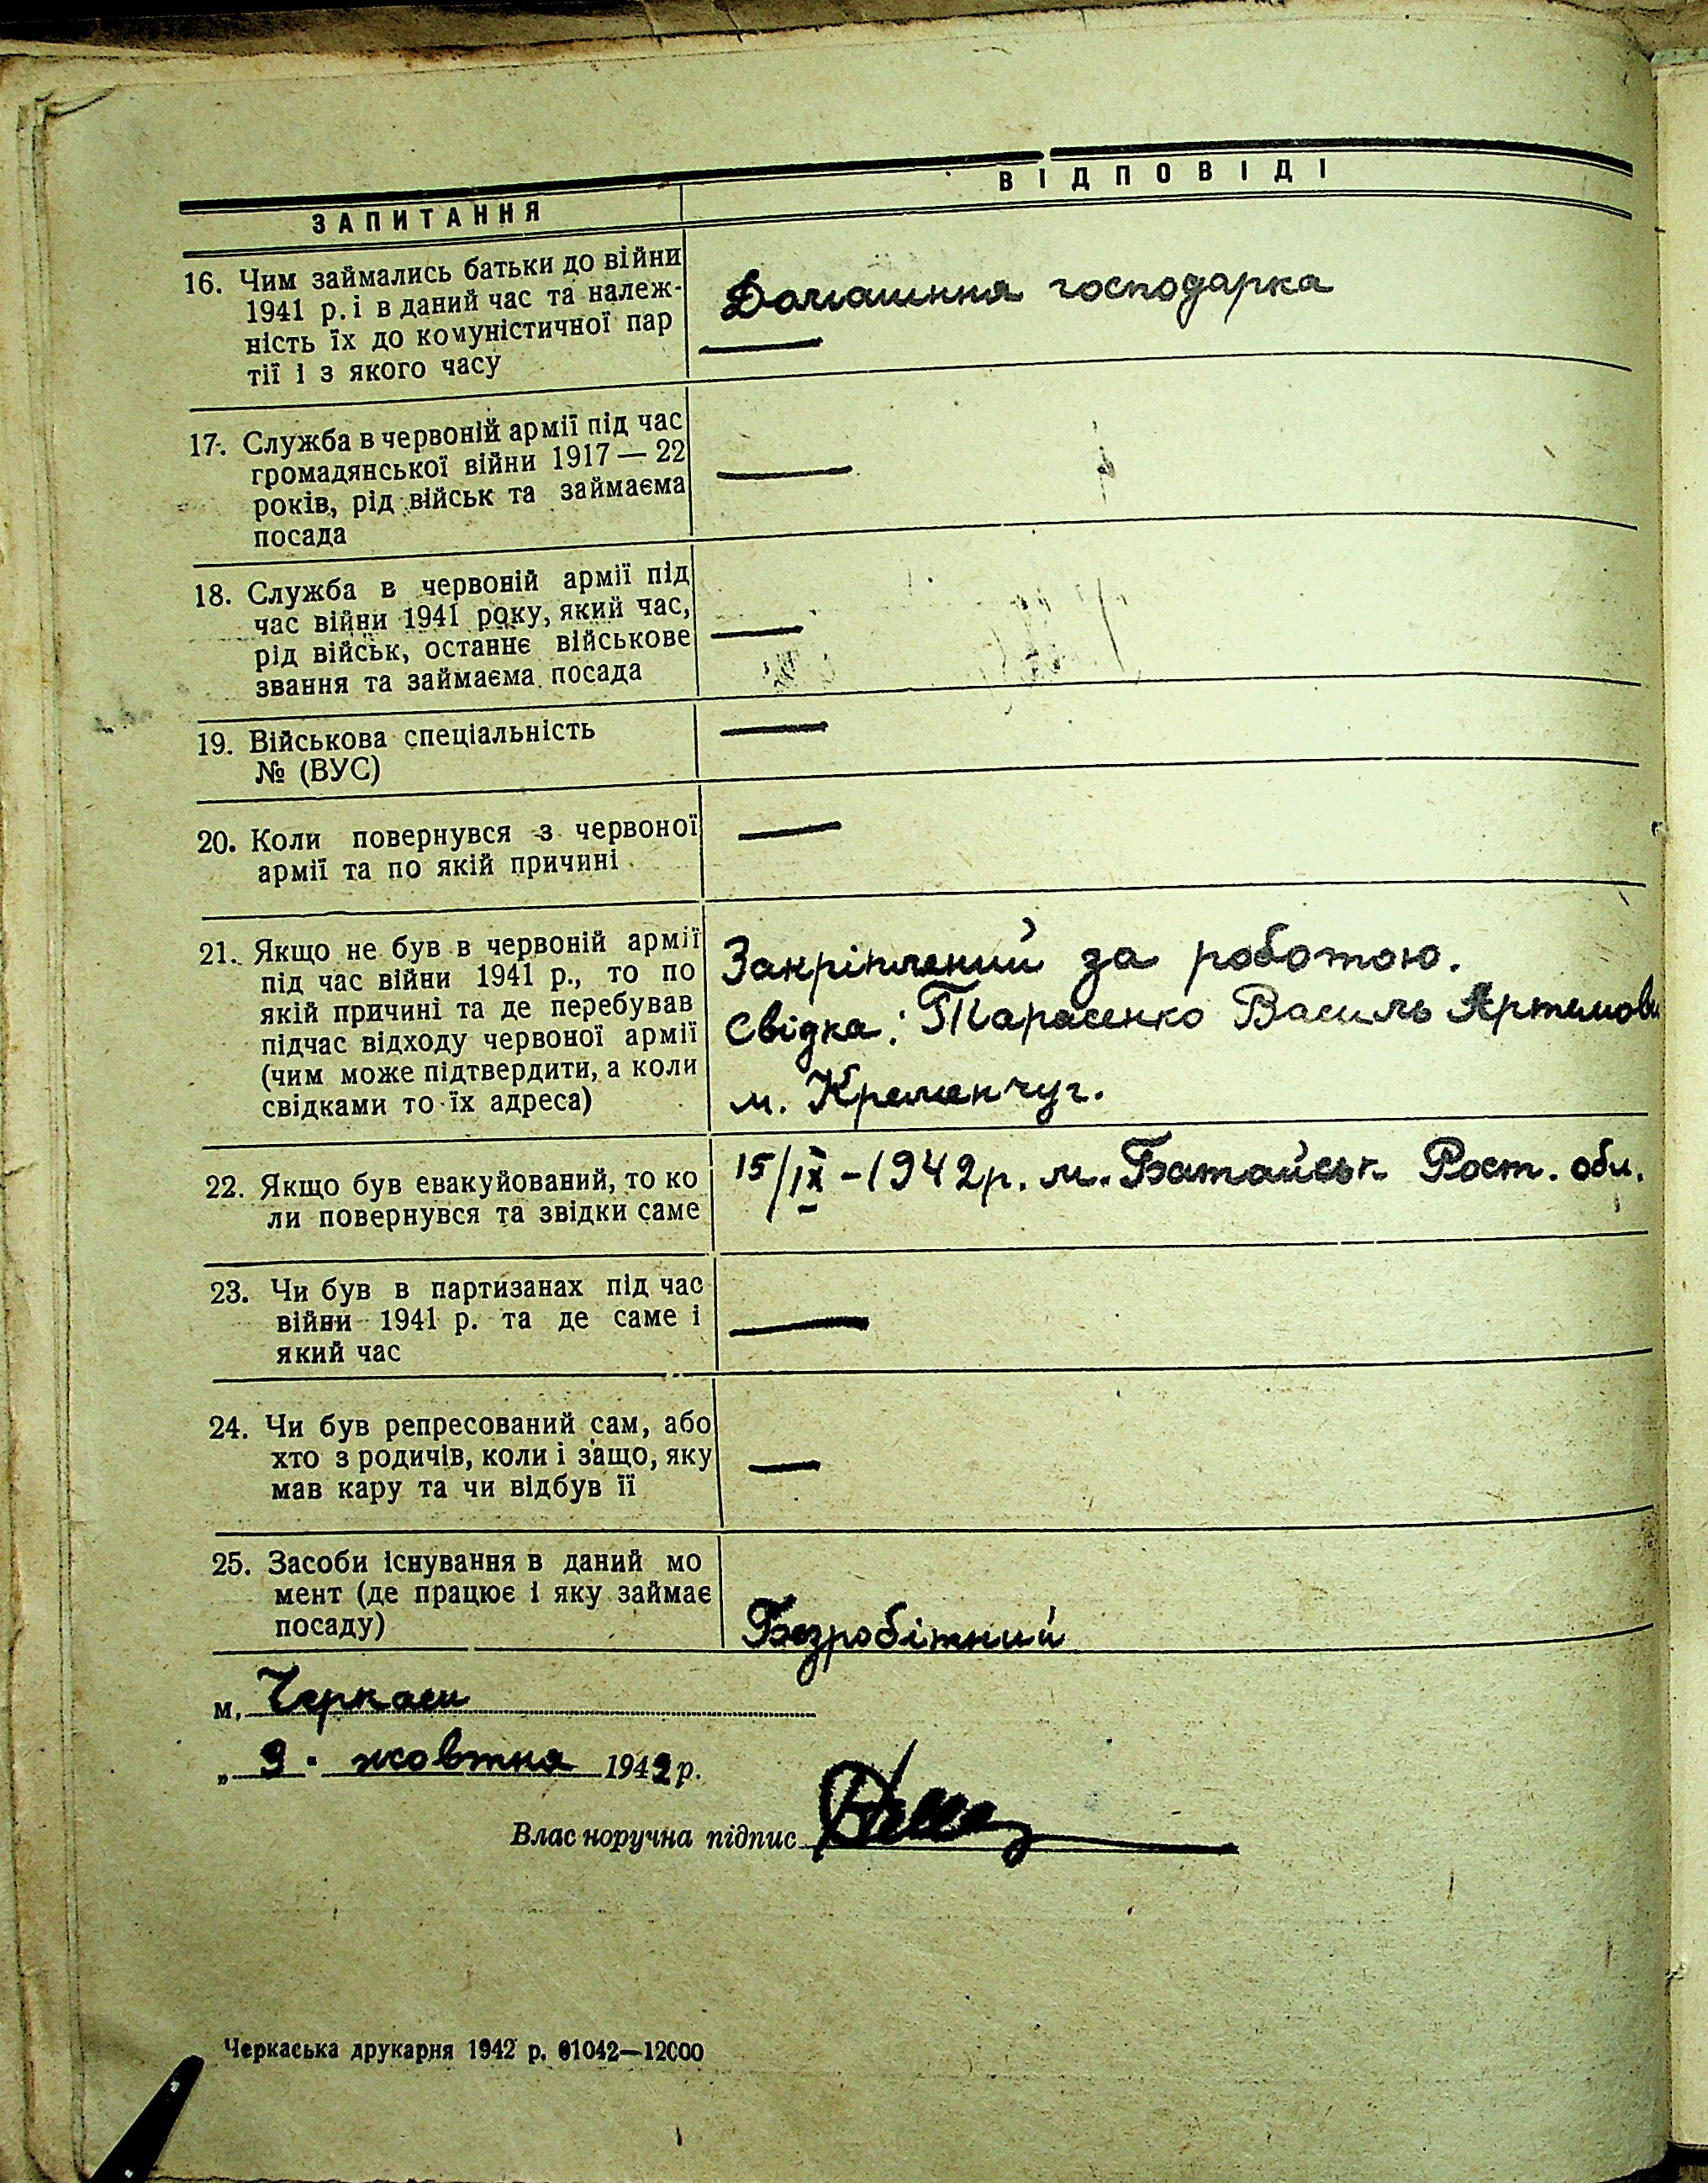 ЗАПИТАННЯ
ВІДПОВІДІ
16. Чим займались батьки до війни
1941 р. і в даний час та належ-
ність їх до комуністичної пар
тії і з якого часу
Домашння господарка
—
17. Служба в червоній армії під час
громадянської війни 1917 — 22
років, рід військ та займаєма
посада
—
18. Служба в червоній армії під
час війни 1941 року, який час,
рід військ, останнє військове
звання та займаєма посада
—
19. Військова спеціальність
№ (ВУС)
—
20. Коли повернувся з червоної
армії та по якій причині
—
21. Якщо не був в червоній армії
під час війни 1941 р., то по
якій причині та де перебував
підчас відходу червоної армії
(чим може підтвердити, а коли
свідками то їх адреса)
Закріплений за роботою.
Свідка: Тарасенко Василь Артемов
м. Кременчуг.
22. Якщо був евакуйований, то ко
ли повернувся та звідки саме
15/IX - 1942 р. м. Батайськ Рост. обл.
23. Чи був в партизанах під час
війни 1941 р. та де саме і
який час
—
24. Чи був репресований сам, або
хто з родичів, коли і защо, яку
мав кару та чи відбув її
—
25. Засоби існування в даний мо
мент (де працює і яку займає
посаду)
Безробітний
м. Черкаси
„ 9 " жовтня 1942 р.
Власноручна підпис
Черкаська друкарня 1942 р. 01042—12000